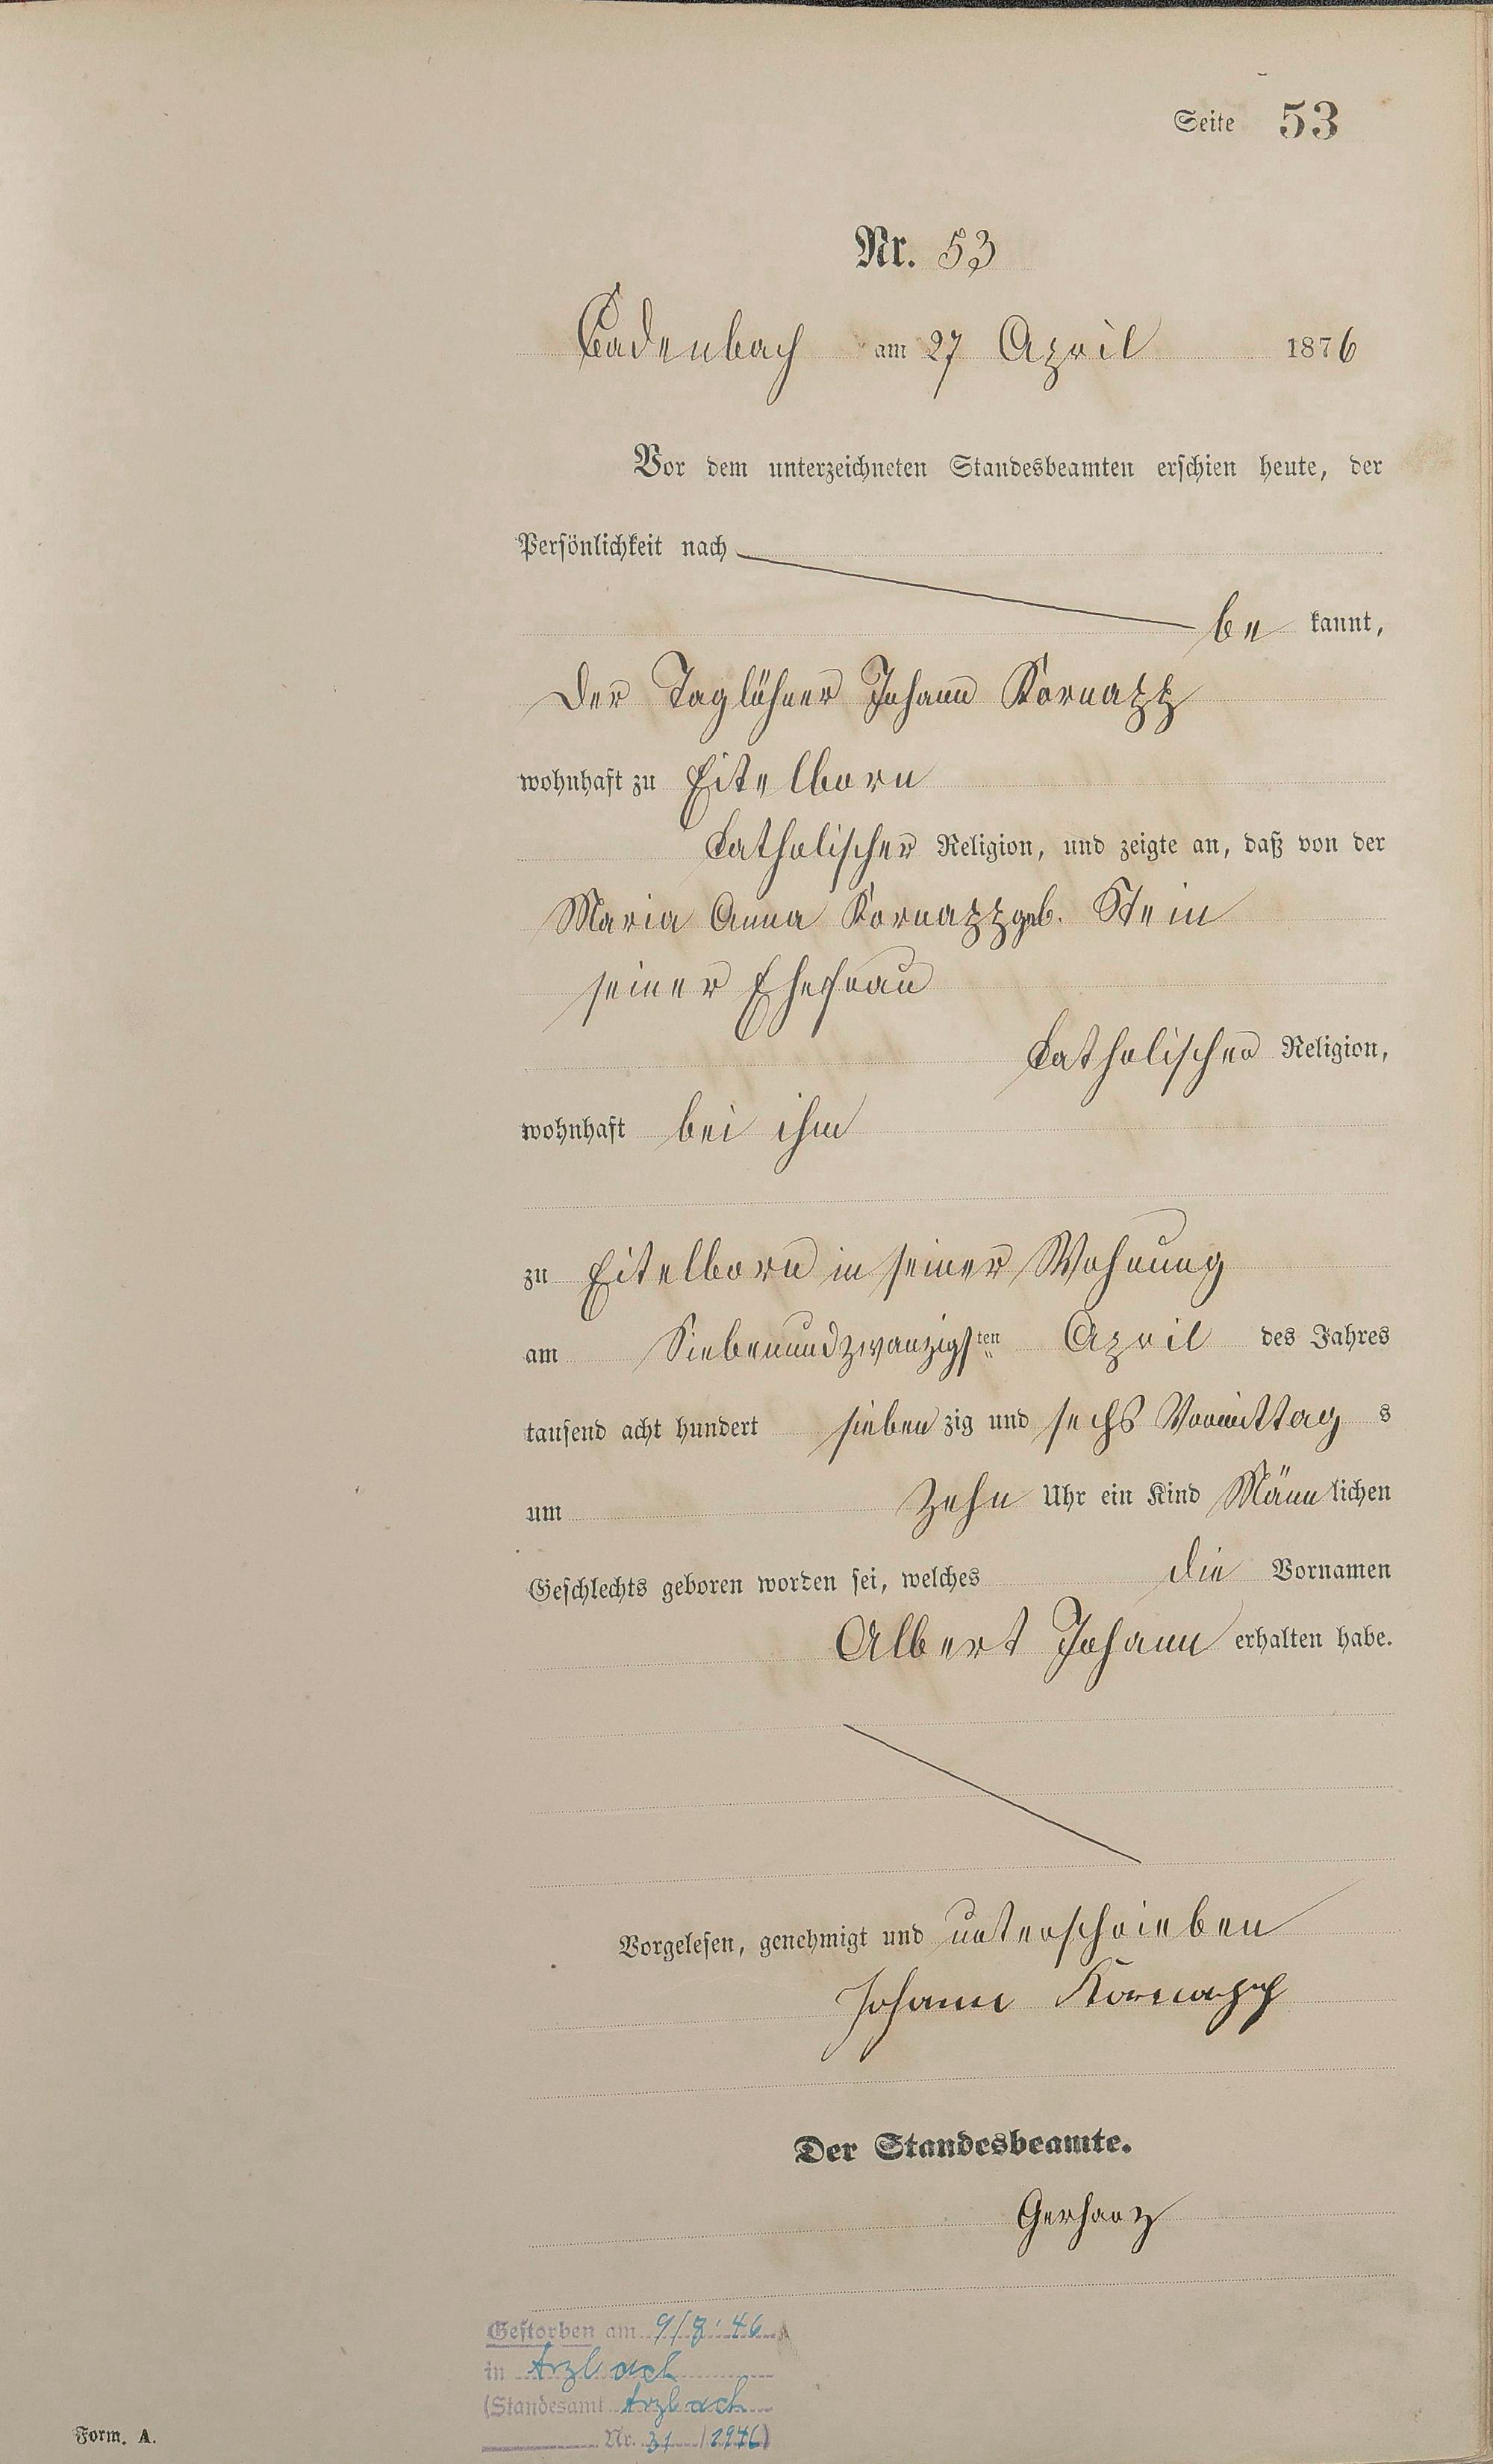 Seite 53
Nr. 53
Cadenbach am 27 April 1876
Vor dem unterzeichneten Standesbeamten erschien heute, der
Persönlichkeit nach
be kannt,
Der Taglöhner Johann Kornapp
wohnhaft zu Eitelborn
katholischer Religion, und zeigte an, daß von der
Maria Anna Kornapp geb. Stein
seiner Ehefrau
katholischer Religion,
wohnhaft bei ihm
zu Eitelborn in seiner Wohnung
am Siebenundzwanzigsten April des Jahres
tausend acht hundert siebenzig und sechs Vormittags
um Zehn Uhr ein Kind Männlichen
Geschlechts geboren worden sei, welches die Vornamen
Albert Johann erhalten habe.
Vorgelesen, genehmigt und unterschrieben
Johann Kornapp
Der Standesbeamte.
Gerharz
Gestorben am 9/8.46
in Arzbach
(Standesamt Arzbach
Nr. 31 /1946)
Form. A.